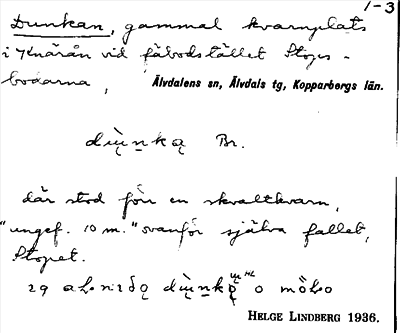 1-3
Dunkan, gammal kvarnplats
i Knärån vid fäbodstället Stops-
bodarna, Älvdalens sn, Älvdals tg, Kopparbergs län.
Br.
där stod förr en skvaltkvarn,
"ungef. 10 m." ovanför själva fallet,
Stopet.
HELGE LINDBERG 1936.